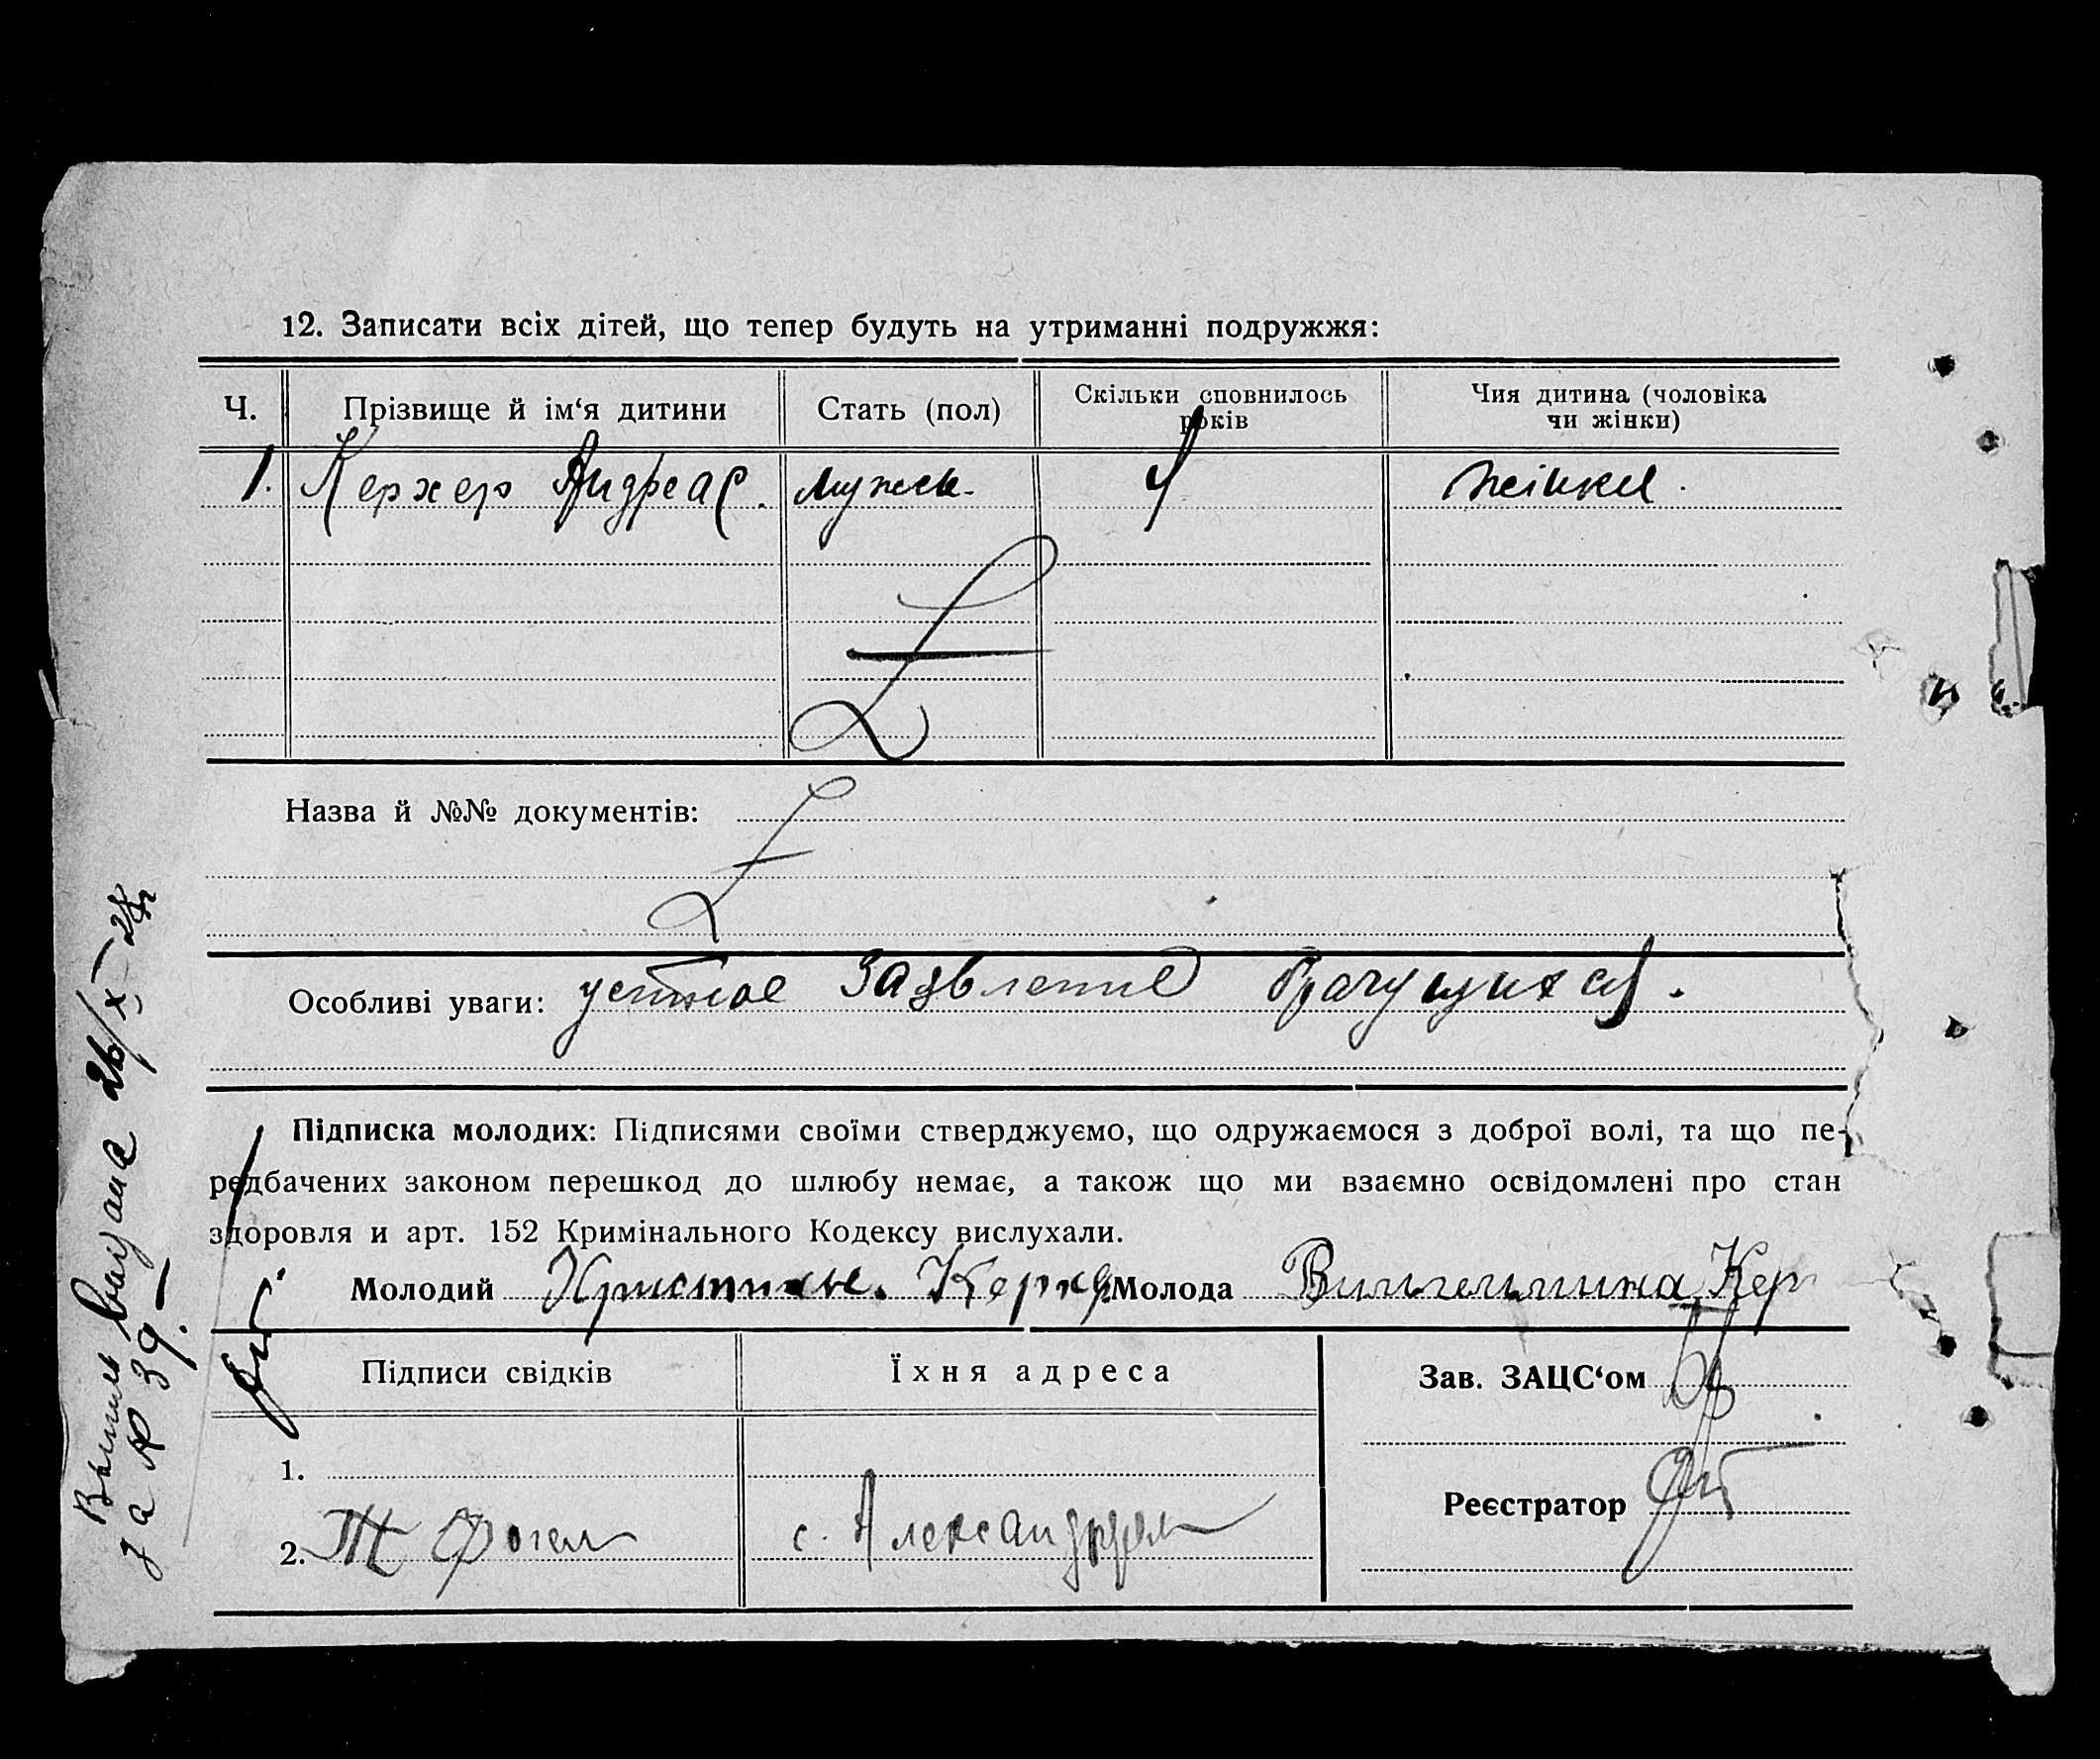 12. Записати всіх дітей, що тепер будуть на утриманні подружжя:
Ч. Прізвище й ім‘я дитини Стать (пол) Скільки сповнилось років Чия дитина (чоловіка чи жінки)
1. Керхер Андреас. мужск. 4 жінки.
Назва й №№ документів:
Особливі уваги: устное заявление брачущихся.
Підписка молодих: Підписями своїми стверджуємо, що одружаємося з доброї волі, та що пе-
редбачених законом перешкод до шлюбу немає, а також що ми взаємно освідомлені про стан
здоровля и арт. 152 Кримінального Кодексу вислухали.
Молодий Молода Вильгельмина Кер
Підписи свідків Їхня адреса Зав. ЗАЦС‘ом
1.
Реєстратор
2. Фогел с. Александрфел
Выпись выдана 26/X-28г
за № 39.